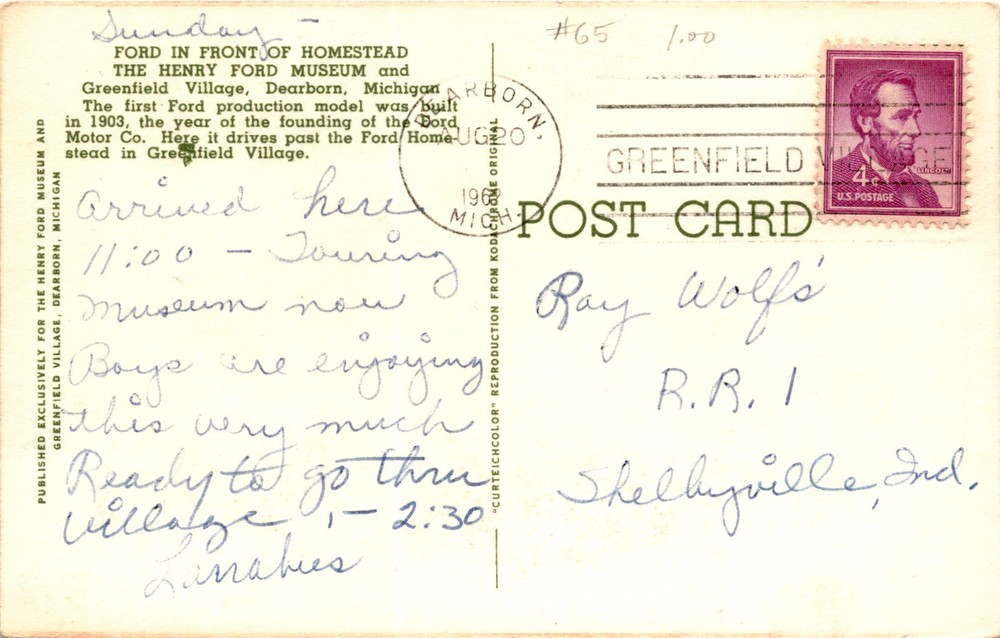 Sunday –
FORD IN FRONT OF HOMESTEAD
THE HENRY FORD MUSEUM and
Greenfield Village, Dearborn, Michigan
The first Ford production model was built
in 1903, the year of the founding of the Ford
Motor Co. Here it drives past the Ford Home-
stead in Greenfield Village.
Arrived here
11:00 – Touring
Museum now
Boys are enjoying
this very much
Ready to go thru
village, – 2:30
Larrabees
PUBLISHED EXCLUSIVELY FOR THE HENRY FORD MUSEUM AND
GREENFIELD VILLAGE, DEARBORN, MICHIGAN
"CURTEICHCOLOR" REPRODUCTION FROM KODACHROME ORIGINAL
#65 1.00
DEARBORN,
AUG 20
MICH.
GREENFIELD VILLAGE
LINCOLN
4¢
U.S. POSTAGE
POST CARD
Ray Wolfs'
R.R. 1
Shelbyville, Ind.